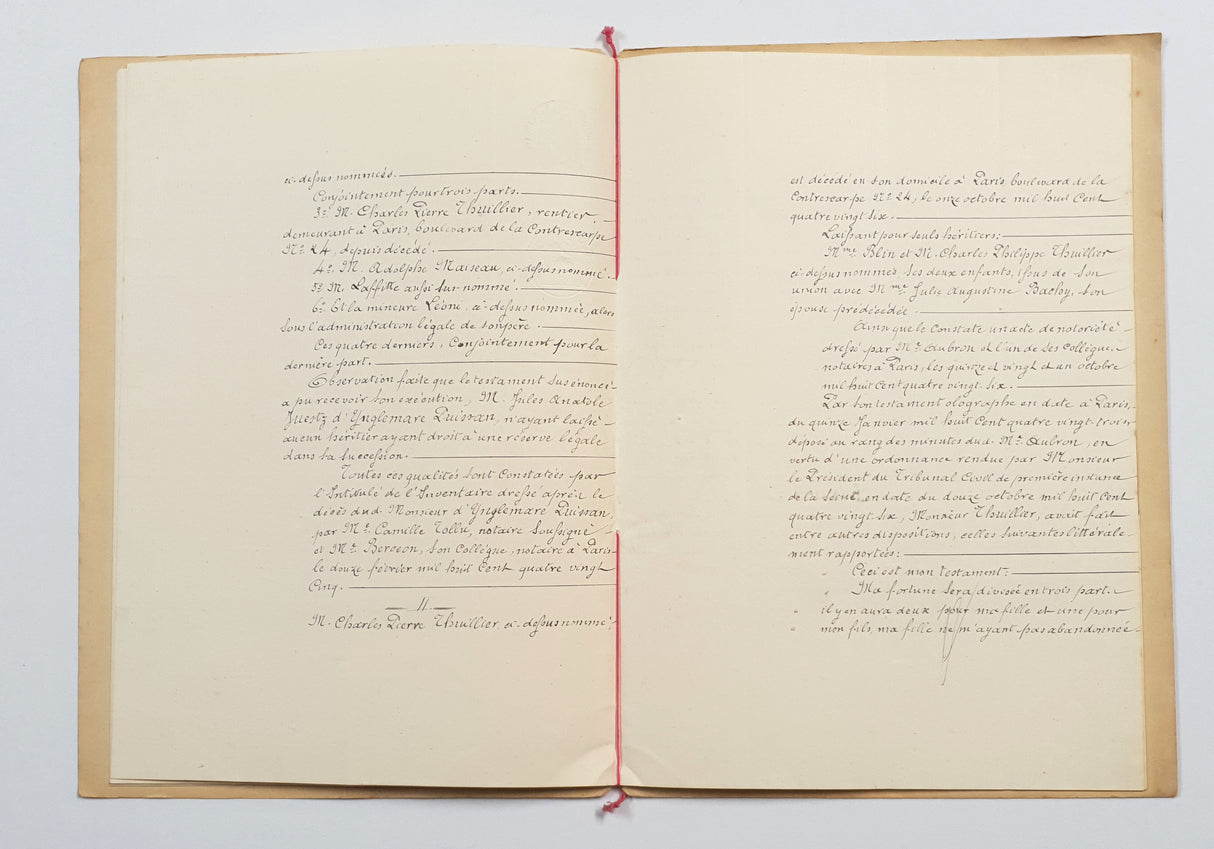 ci-dessus nommées.
Conjointement pour trois parts.
3º M. Charles Pierre Thuillier, rentier,
demeurant à Paris, boulevard de la Contrescarpe
Nº 24, depuis décédé.
4º M. Adolphe Maiseau, ci-dessus nommé
5º M. Laffitte aussi sus-nommé.
6º Et la mineure Léoni, ci-dessus nommée, alors
sous l'administration légale de son père.
Ces quatre derniers, Conjointement pour la
dernière part.
Observation faite que le testament sus énoncé
a pu recevoir son exécution, M. Jules Anatole
d'Ynglemare Puissan, n'ayant laissé
aucun héritier ayant droit à une réserve légale
dans sa succession.
Toutes ces qualités sont Constatées par
l'Intitulé de l'Inventaire dressé après le
décès dud. Monsieur d'Ynglemare Puissan,
par Mº Camille Tollu, notaire soussigné
et Mº Berceon, son Collègue, notaire à Paris
le douze février mil huit Cent quatre vingt
Cinq.
II
M. Charles Pierre Thuillier, ci-dessus nommé,
est décédé en son domicile à Paris, boulevard de la
Contrescarpe Nº 24, le onze octobre mil huit Cent
quatre vingt six.
Laissant pour seuls héritiers:
Mme Blin et M. Charles Philippe Thuillier
ci-dessus nommés, ses deux enfants, issus de son
union avec Mme Julie Augustine Bachoy, son
épouse prédécédée.
Ainsi que le Constate un acte de notoriété
dressé par Mº Aubron et l'un de ses Collègues
notaires à Paris, les quinze et vingt et un octobre
mil huit Cent quatre vingt six.
Par son testament olographe en date à Paris,
du quinze Janvier mil huit Cent quatre vingt trois
déposé au rang des minutes dud. Mº Aubron, en
vertu d'une ordonnance rendue par Monsieur
le Président du Tribunal Civil de première instance
de la Seine, en date du douze octobre mil huit Cent
quatre vingt six, Monsieur Thuillier, avait fait
entre autres dispositions, celles suivantes littérale-
ment rapportées:
" Ceci est mon testament:
" Ma fortune sera divisée en trois parts
" il y en aura deux pour ma fille et une pour
" mon fils, ma fille ne m'ayant pas abandonnée